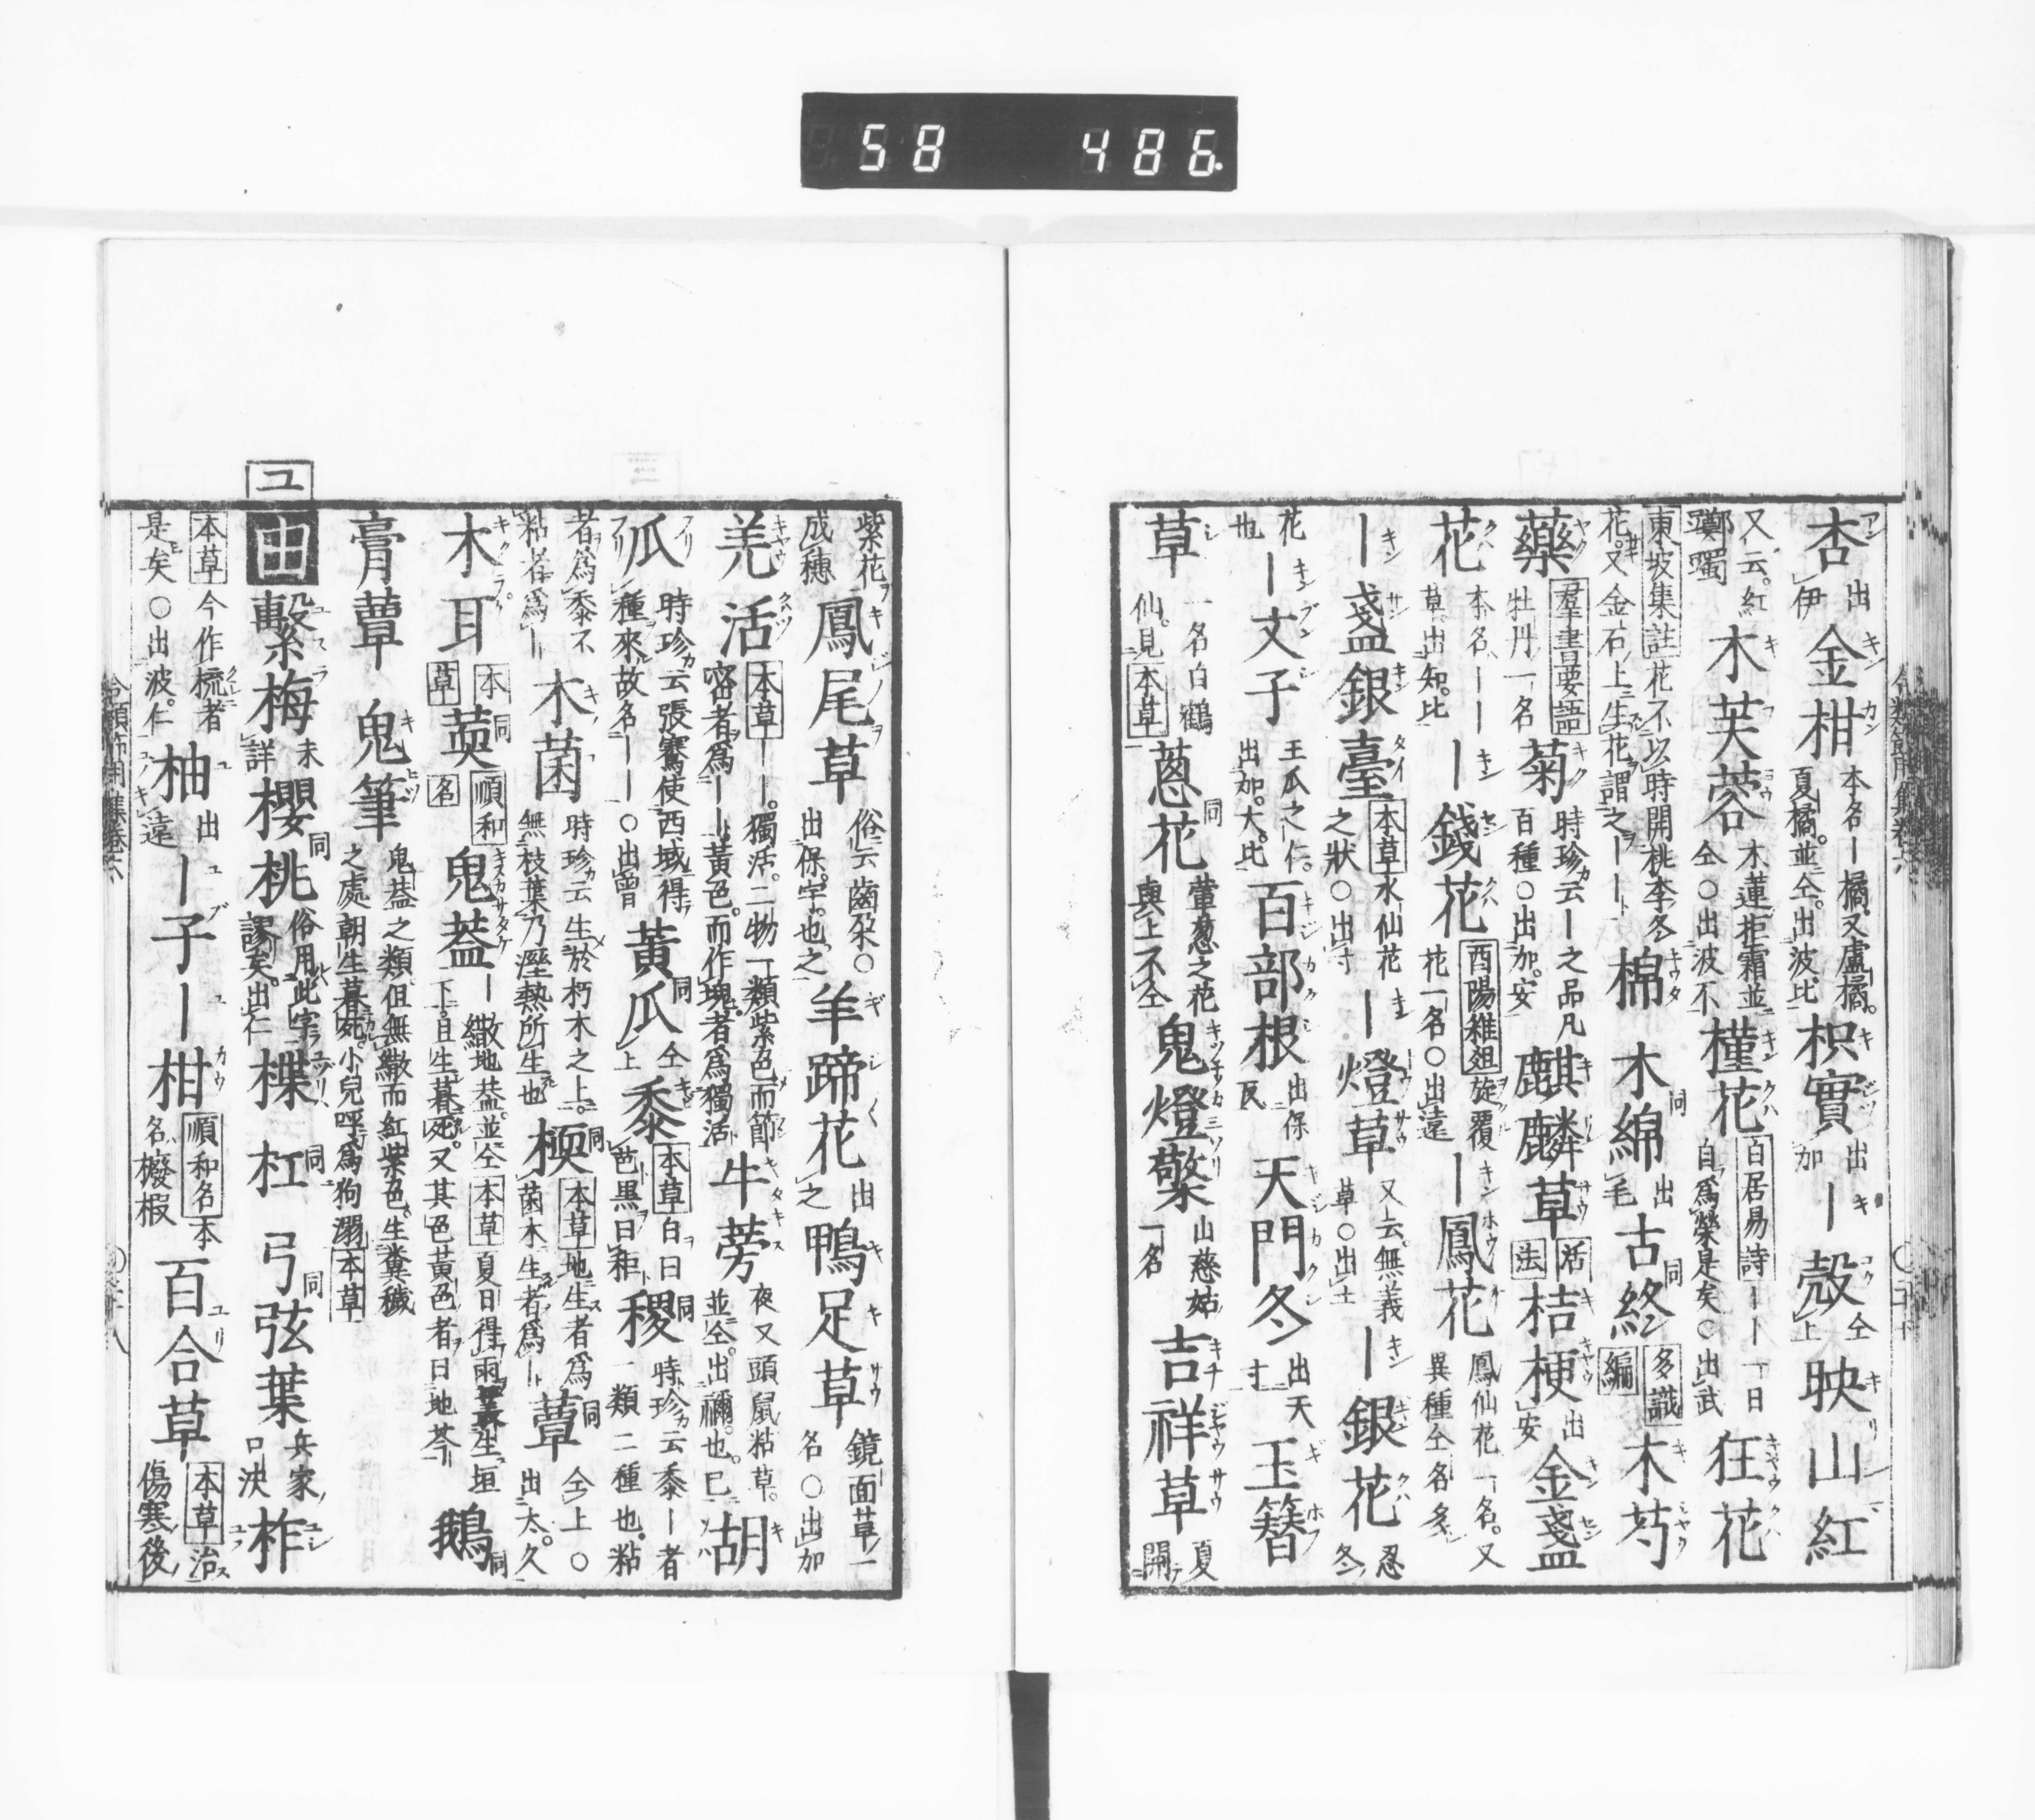 58 486
杏 出伊 金柑 本名ー橘又盧橘。夏橘。並仝。出波比 枳實 出加 ー殼 仝上 映山紅
又云。紅躑躅 木芙蓉 木蓮拒霜並仝○出波不 槿花 白居易詩ーー一日自爲榮是矣○出武 狂花
東坡集註花不以時開桃李冬花。又金石上生花謂之ーー 棉 木綿 同 出毛 古終 同 多識編 木芍
藥 羣書要語牡丹一名 菊 時珍云ー之品凡百種○出加。安 麒麟草 活法 桔梗 出安 金盞
花 本名ーー草。出知。比 ー錢花 酉陽雑俎旋覆花一名○出遠 ー鳳花 鳳仙花一名。又異種仝名多
ー盞銀臺 本草水仙花之狀○出寸 ー燈草 又云無義草○出士 ー銀花 忍冬
花也 ー文子 王瓜之仁。出加。大。比 百部根 出保民 天門冬 出天十 玉簪
草 一名白鶴仙。見本草 蔥花 同 葷蔥之花與上不仝 鬼燈檠 山慈姑一名 吉祥草 夏開
紫花成穗 鳳尾草 俗云齒朶○出保。宇。也。之 羊蹄花 出之 鴨足草 鏡面草一名○出加
羌活 本草ーー。獨活。二物一類紫色而節密者爲ーー黃色。而作塊者爲獨活 牛蒡 夜叉頭鼠粘草。並仝。出禰。也。巳 胡
瓜 時珍云張騫使西域得種來故名ーー○出曾 黃瓜 同 仝上 黍 本草白曰芑黑曰秬 稷 同 時珍云黍ー者一類二種也。粘
者爲黍不粘者爲ー 木菌 時珍云生於朽木之上。無枝葉乃溼熱所生也 㮕 同 本草地生者爲菌木生者爲ー 蕈 同 仝上○出太。久
木耳 本草 萸 同 順和名 鬼蓋 ー繖地蓋。並仝本草夏日得雨叢生垣下。且生暮死。又其色黃色者曰地苓 鵝 同
膏蕈 鬼筆 鬼蓋之類但無繖而紅紫色。生糞穢之處朝生暮死。小兒呼爲狗溺本草
ユ
由 繫梅 未詳 櫻桃 同 俗用此字謬矣。出仁 楪 杠 同 弓弦葉 同 兵家口泱 柞
本草今作梳者是矣○出波。仁 柚 出遠 ー子 ー柑 順和名本名櫠椵 百合草 本草治傷寒後